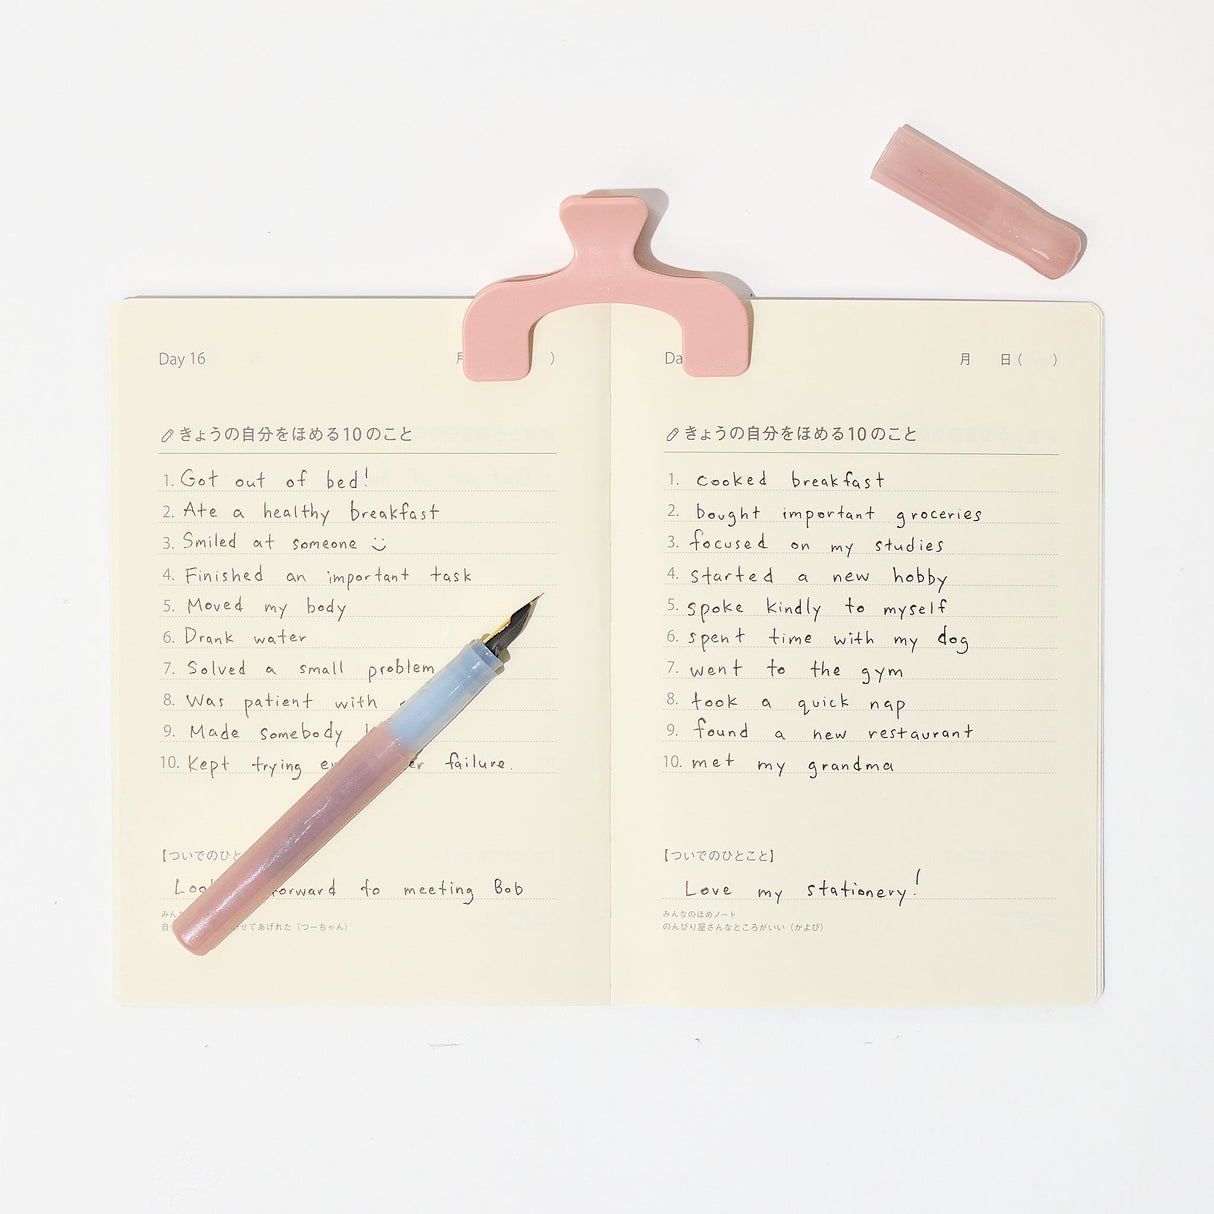 Day 16
)
きょうの自分をほめる10のこと
1. Got out of bed!
2. Ate a healthy breakfast
3. Smiled at someone
4. Finished an important task
5. Moved my body
6. Drank water
7. Solved a small problem
8. Was patient with
9. Made somebody
10. Kept trying failure.
【ついでのひと
forward to meeting Bob
みん
自 せてあげれた（つーちゃん）
月 日（ ）
きょうの自分をほめる10のこと
1. cooked breakfast
2. bought important groceries
3. focused on my studies
4. started a new hobby
5. spoke kindly to myself
6. spent time with my dog
7. went to the gym
8. took a quick nap
9. found a new restaurant
10. met my grandma
【ついでのひとこと】
Love my stationery!
みんなのほめノート
のんびり屋さんなところがいい（かよぴ）